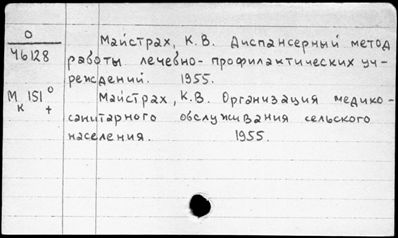 О
46128
Майстрах, К.В. Диспансерный метод
работы лечебно-профилактических уч-
реждений. 1955.
М 151 0
к +
Майстрах, К.В. Организация медико-
санитарного обслуживания сельского
населения. 1955.